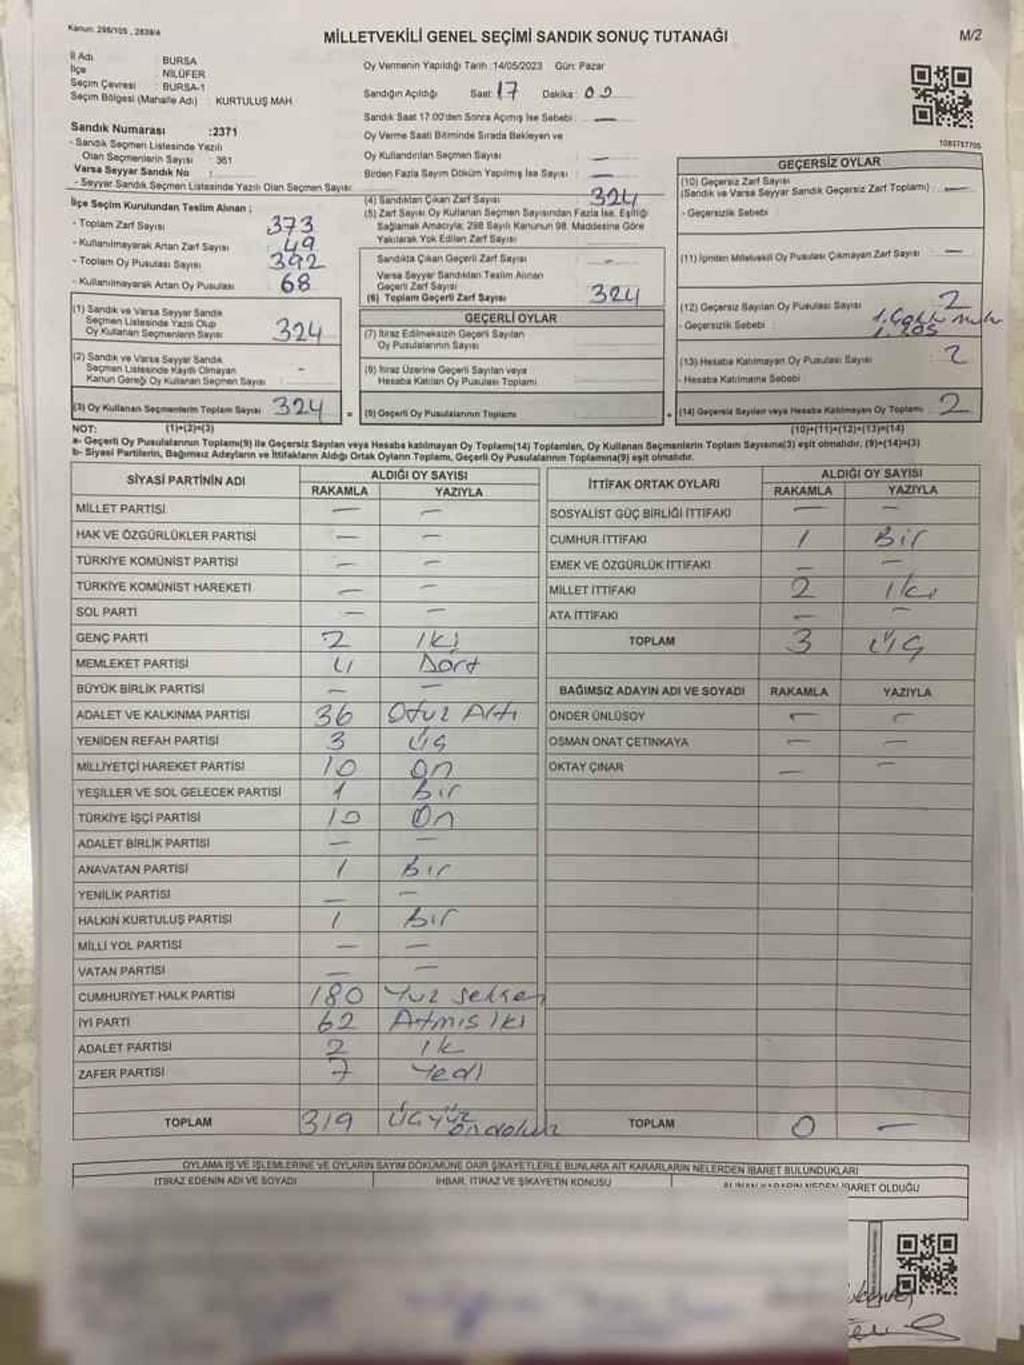 Kanun: 298/105 , 2839/4
MİLLETVEKİLİ GENEL SEÇİMİ SANDIK SONUÇ TUTANAĞI
M/2
İl Adı BURSA
İlçe NİLÜFER
Seçim Çevresi : BURSA-1
Seçim Bölgesi (Mahalle Adı) KURTULUŞ MAH.
Sandık Numarası :2371
- Sandık Seçmen Listesinde Yazılı
Olan Seçmenlerin Sayısı : 361
Varsa Seyyar Sandık No :
- Seyyar Sandık Seçmen Listesinde Yazılı Olan Seçmen Sayısı:
İlçe Seçim Kurulundan Teslim Alınan :
- Toplam Zarf Sayısı 373
- Kullanılmayarak Artan Zarf Sayısı 49
- Toplam Oy Pusulası Sayısı 392
- Kullanılmayarak Artan Oy Pusulası 68
(1) Sandık ve Varsa Seyyar Sandık
Seçmen Listesinde Yazılı Olup
Oy Kullanan Seçmenlerin Sayısı 324
(2) Sandık ve Varsa Seyyar Sandık
Seçmen Listesinde Kayıtlı Olmayan
Kanun Gereği Oy Kullanan Seçmen Sayısı -
(3) Oy Kullanan Seçmenlerin Toplam Sayısı 324 =
Oy Vermenin Yapıldığı Tarih :14/05/2023 Gün: Pazar
Sandığın Açıldığı Saat: 17 Dakika : 00
Sandık Saat 17.00'den Sonra Açılmış İse Sebebi : —
Oy Verme Saati Bitiminde Sırada Bekleyen ve
Oy Kullandırılan Seçmen Sayısı : —
Birden Fazla Sayım Döküm Yapılmış İse Sayısı : —
(4) Sandıktan Çıkan Zarf Sayısı 324
(5) Zarf Sayısı Oy Kullanan Seçmen Sayısından Fazla İse, Eşitliği
Sağlamak Amacıyla; 298 Sayılı Kanunun 98. Maddesine Göre
Yakılarak Yok Edilen Zarf Sayısı :
Sandıkta Çıkan Geçerli Zarf Sayısı : —
Varsa Seyyar Sandıktan Teslim Alınan
Geçerli Zarf Sayısı :
(6) Toplam Geçerli Zarf Sayısı : 324
GEÇERLİ OYLAR
(7) İtiraz Edilmeksizin Geçerli Sayılan
Oy Pusulalarının Sayısı :
(8) İtiraz Üzerine Geçerli Sayılan veya
Hesaba Katılan Oy Pusulası Toplamı :
(9) Geçerli Oy Pusulalarının Toplamı :
1083757705
GEÇERSİZ OYLAR
(10) Geçersiz Zarf Sayısı
(Sandık ve Varsa Seyyar Sandık Geçersiz Zarf Toplamı) : —
- Geçersizlik Sebebi :
(11) İçinden Milletvekili Oy Pusulası Çıkmayan Zarf Sayısı : —
(12) Geçersiz Sayılan Oy Pusulası Sayısı : 2
- Geçersizlik Sebebi :
(13) Hesaba Katılmayan Oy Pusulası Sayısı : 2
- Hesaba Katılmama Sebebi
(14) Geçersiz Sayılan veya Hesaba Katılmayan Oy Toplamı : 2
NOT: (1)+(2)=(3) (10)+(11)+(12)+(13)=(14)
a- Geçerli Oy Pusulalarının Toplamı(9) ile Geçersiz Sayılan veya Hesaba katılmayan Oy Toplamı(14) Toplamları, Oy Kullanan Seçmenlerin Toplam Sayısına(3) eşit olmalıdır. (9)+(14)=(3)
b- Siyasi Partilerin, Bağımsız Adayların ve İttifakların Aldığı Ortak Oyların Toplamı, Geçerli Oy Pusulalarının Toplamına(9) eşit olmalıdır.
SİYASİ PARTİNİN ADI ALDIĞI OY SAYISI
RAKAMLA YAZIYLA
MİLLET PARTİSİ — —
HAK VE ÖZGÜRLÜKLER PARTİSİ — —
TÜRKİYE KOMÜNİST PARTİSİ — —
TÜRKİYE KOMÜNİST HAREKETİ — —
SOL PARTİ — —
GENÇ PARTİ 2 iki
MEMLEKET PARTİSİ 4 Dört
BÜYÜK BİRLİK PARTİSİ — —
ADALET VE KALKINMA PARTİSİ 36 Otuz Altı
YENİDEN REFAH PARTİSİ 3 üç
MİLLİYETÇİ HAREKET PARTİSİ 10 on
YEŞİLLER VE SOL GELECEK PARTİSİ 1 bir
TÜRKİYE İŞÇİ PARTİSİ 10 On
ADALET BİRLİK PARTİSİ — —
ANAVATAN PARTİSİ 1 Bir
YENİLİK PARTİSİ — —
HALKIN KURTULUŞ PARTİSİ 1 Bir
MİLLİ YOL PARTİSİ — —
VATAN PARTİSİ — —
CUMHURİYET HALK PARTİSİ 180 Yüz seksen
İYİ PARTİ 62 Atmış iki
ADALET PARTİSİ 2 ik
ZAFER PARTİSİ 7 Yedi
TOPLAM 319 üçyüz ondokuz
İTTİFAK ORTAK OYLARI ALDIĞI OY SAYISI
RAKAMLA YAZIYLA
SOSYALİST GÜÇ BİRLİĞİ İTTİFAKI — —
CUMHUR İTTİFAKI 1 Bir
EMEK VE ÖZGÜRLÜK İTTİFAKI — —
MİLLET İTTİFAKI 2 iki
ATA İTTİFAKI — —
TOPLAM 3 üç
BAĞIMSIZ ADAYIN ADI VE SOYADI RAKAMLA YAZIYLA
ÖNDER ÜNLÜSOY — —
OSMAN ONAT ÇETİNKAYA — —
OKTAY ÇINAR — —
TOPLAM 0 —
OYLAMA İŞ VE İŞLEMLERİNE VE OYLARIN SAYIM DÖKÜMÜNE DAİR ŞİKAYETLERLE BUNLARA AİT KARARLARIN NELERDEN İBARET BULUNDUKLARI
İTİRAZ EDENİN ADI VE SOYADI İHBAR, İTİRAZ VE ŞİKAYETİN KONUSU ALINAN KARARIN NEDEN İBARET OLDUĞU